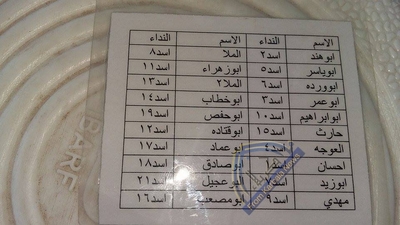 الاسم النداء الاسم النداء
ابوهند اسد٢ الملا اسد٨
ابوياسر اسد٥ ابوزهراء اسد١١
ابوورده اسد٦ الملا٢ اسد١٣
ابوعمر اسد٣ ابوخطاب اسد١٤
ابوابراهيم اسد١٠ ابوحفص اسد١٩
حارث اسد١٥ ابوقتاده اسد١٢
العوجه اسد٤ ابوعماد اسد١٧
احسان اسد١ ابوصادق اسد١٨
ابوزيد ابوعجيل اسد٢١
مهدي اسد٩ ابومصعب اسد١٦
BARF